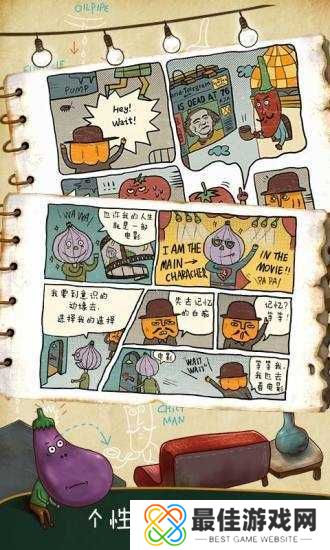 OILPIPE
PUMP
Hey!
Wait!
IS DEAD AT 76
WA WA!
也许我的人生
就是一部
电影
I AM THE
MAIN →
CHARACHER
IN THE
MOVIE!!
PA PA!
我要到意识的
边缘去.
选择我的选择
失去记忆
的白痴
记忆?
等等
电影
WAIT,
WAIT!
等等我,
我也去
看电影
CHILI
MAN
个性
最佳游戏网
BEST GAME WEBSITE